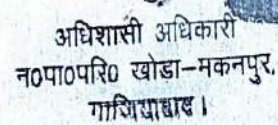 अधिशासी अधिकारी
न०पा०परि० खोडा-मकनपुर,
गाजियाबाद।